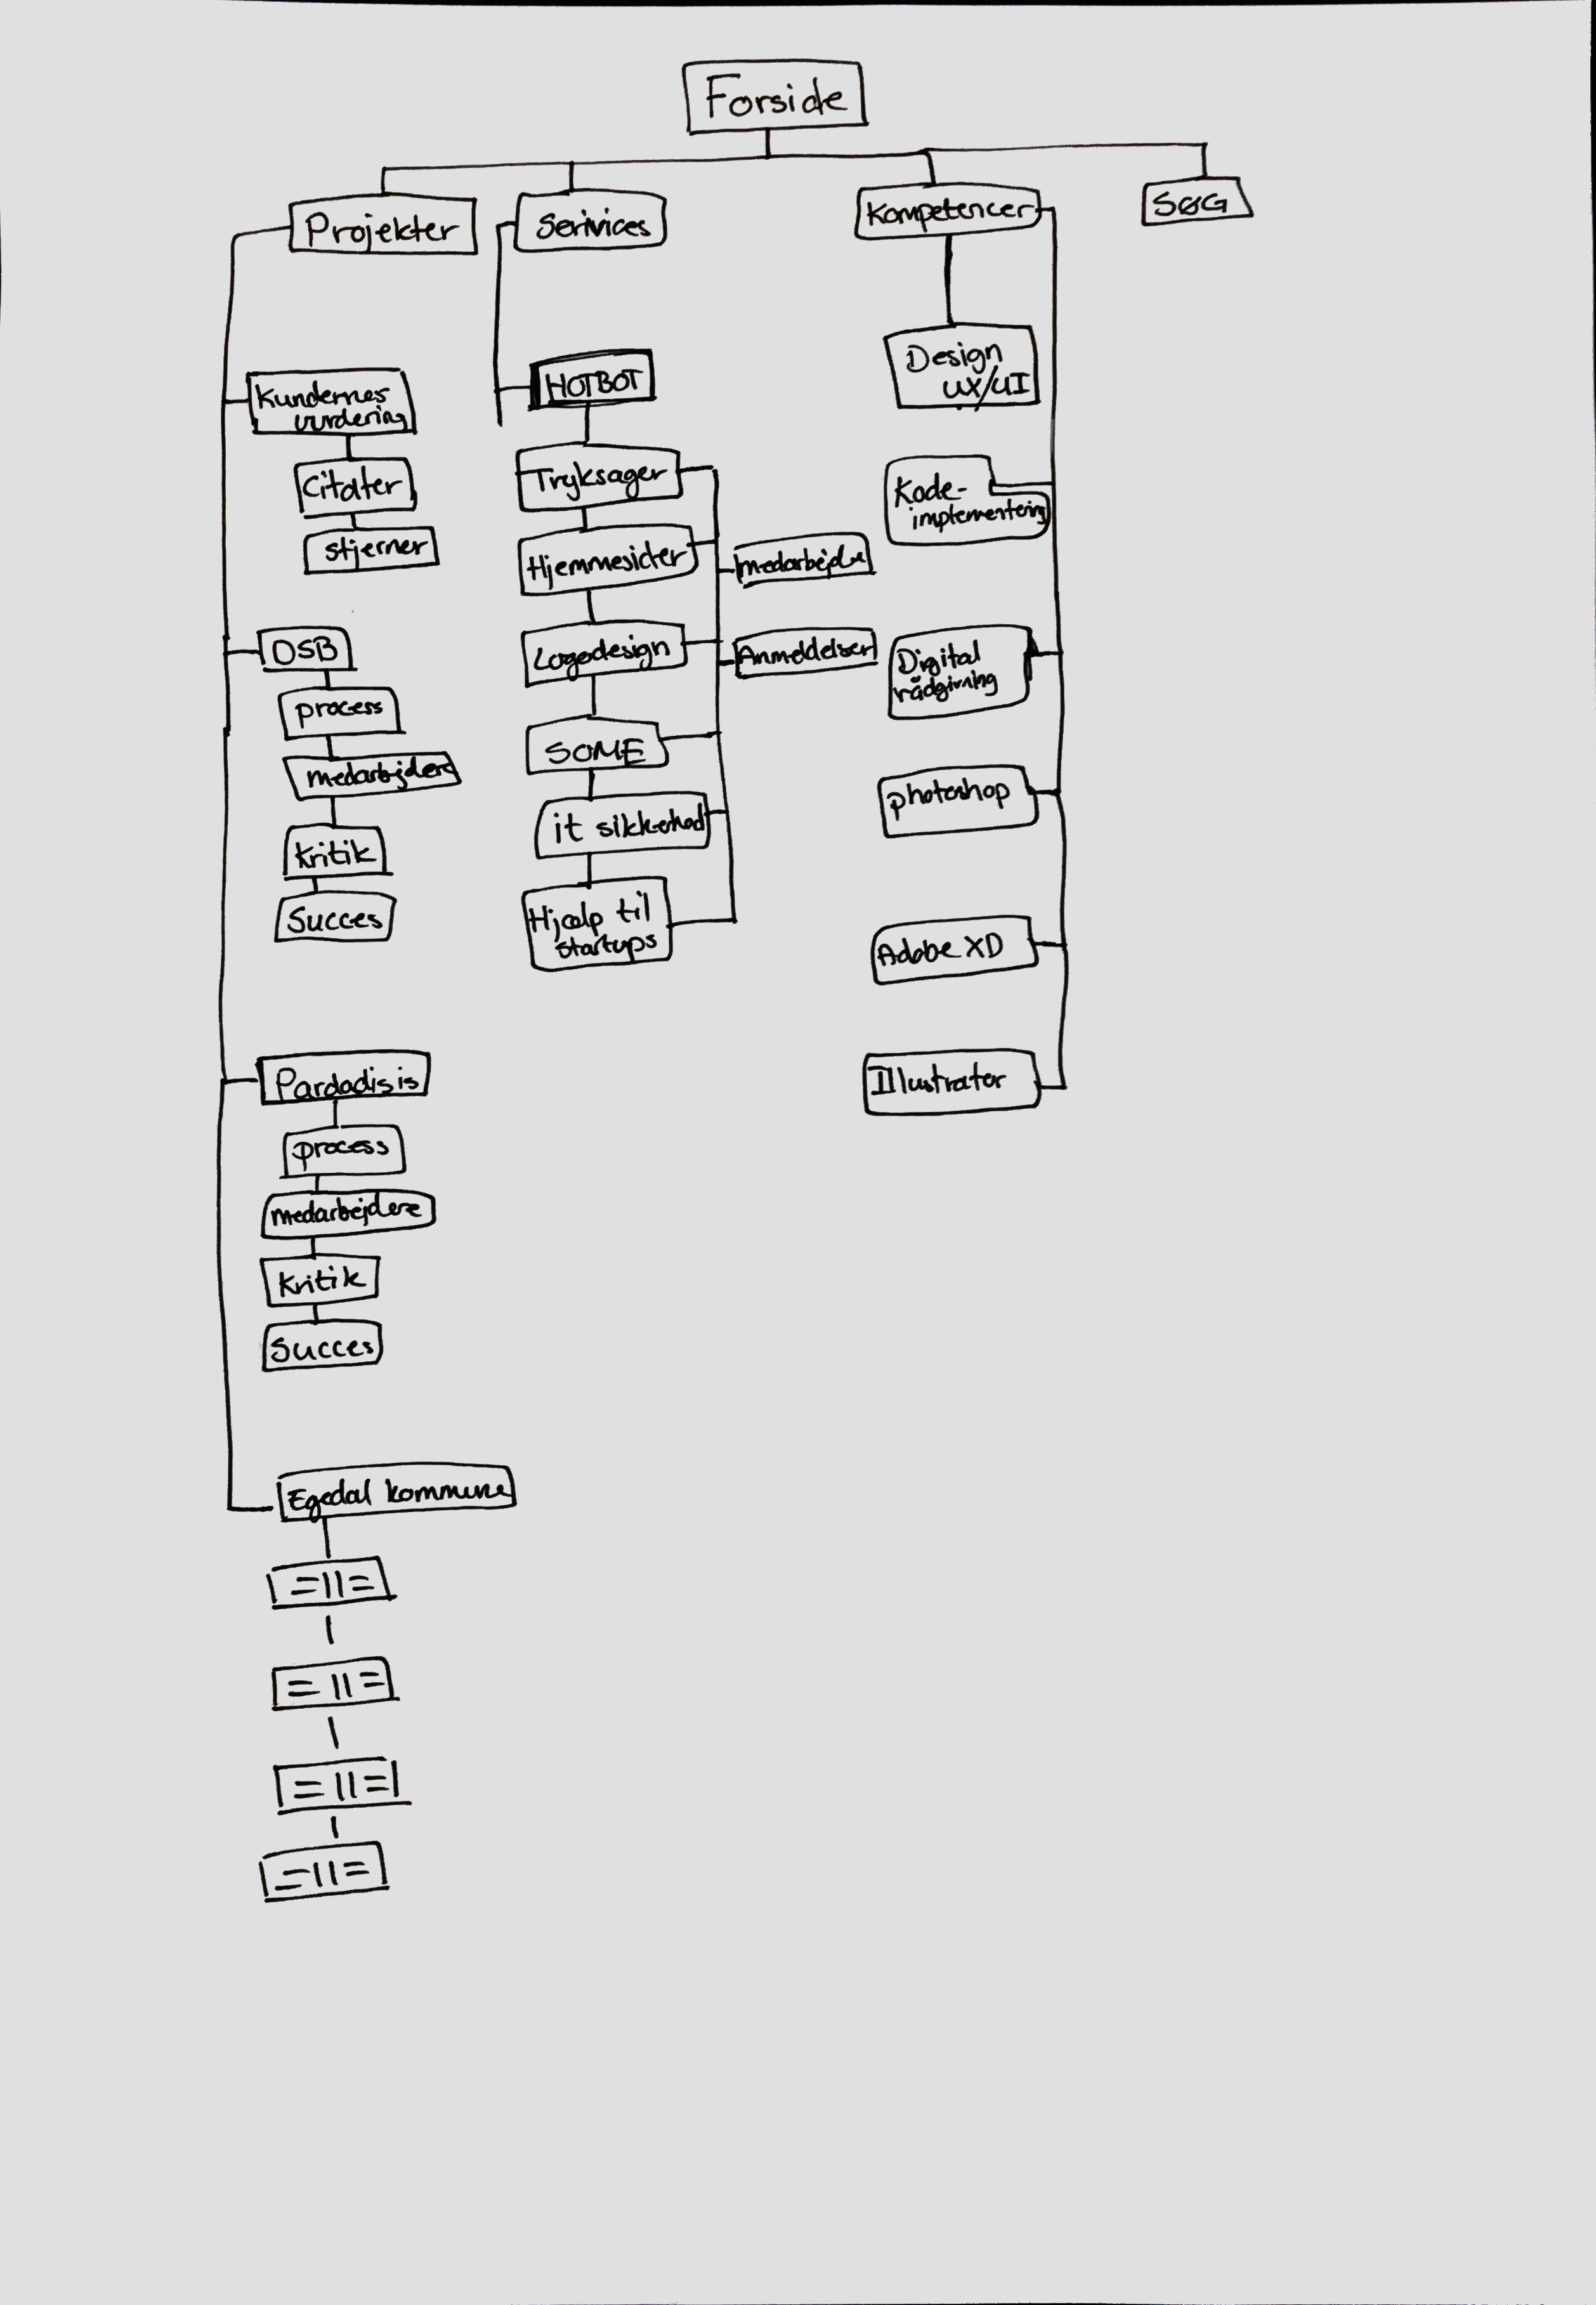 Forside
Projekter
Serivices
Kompetencer
SØG
Kundernes
vurdering
Citater
stjerner
DSB
process
medarbjdere
kritik
Succes
Pardadisis
process
medarbejdere
kritik
Succes
Egedal kommune
=||=
=||=
=||=
=||=
HOTBOT
Tryksager
Hjemmesider
Logodesign
SOME
it sikkerhed
Hjælp til
startups
medarbejder
Anmeldelser
Design
UX/UI
Kode-
implementering
Digital
rådgivning
photoshop
Adobe XD
Illustrator